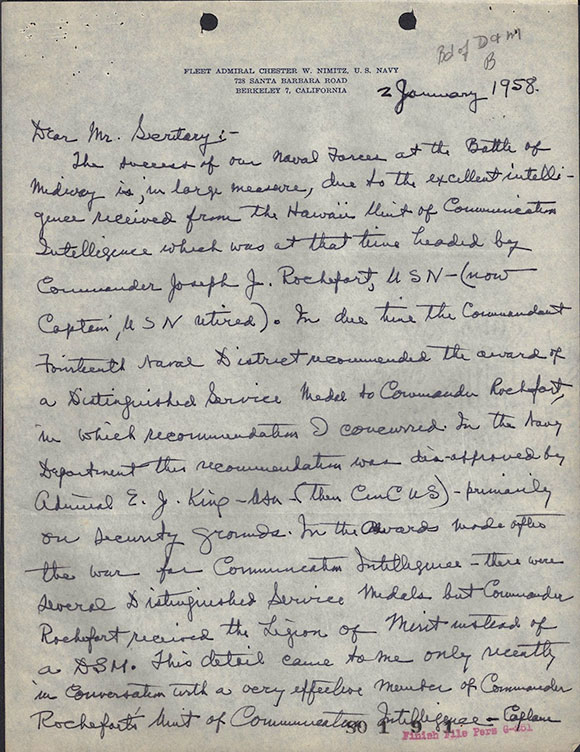 Bd of D & M
B
FLEET ADMIRAL CHESTER W. NIMITZ, U. S. NAVY
728 SANTA BARBARA ROAD
BERKELEY 7, CALIFORNIA
2 January 1958.
Dear Mr. Secretary:-
The success of our Naval Forces at the Battle of
Midway is, in large measure, due to the excellent intelli-
gence received from the Hawaii Unit of Communication
Intelligence which was at that time headed by
Commander Joseph J. Rochefort, USN - (now
Captain, USN retired). In due time the Commandant
Fourteenth Naval District recommended the award of
a Distinguished Service Medal to Commander Rochefort,
in which recommendation I concurred. In the Navy
Department this recommendation was dis-approved by
Admiral E. J. King - USN - (then CinCUS) - primarily
on security grounds. In the Awards made after
the war for Communication Intelligence - there were
several Distinguished Service Medals but Commander
Rochefort received the Legion of Merit instead of
a DSM. This detail came to me only recently
in conversation with a very effective member of Commander
Rochefort's Unit of Communication Intelligence - Captain
Finish File Pers